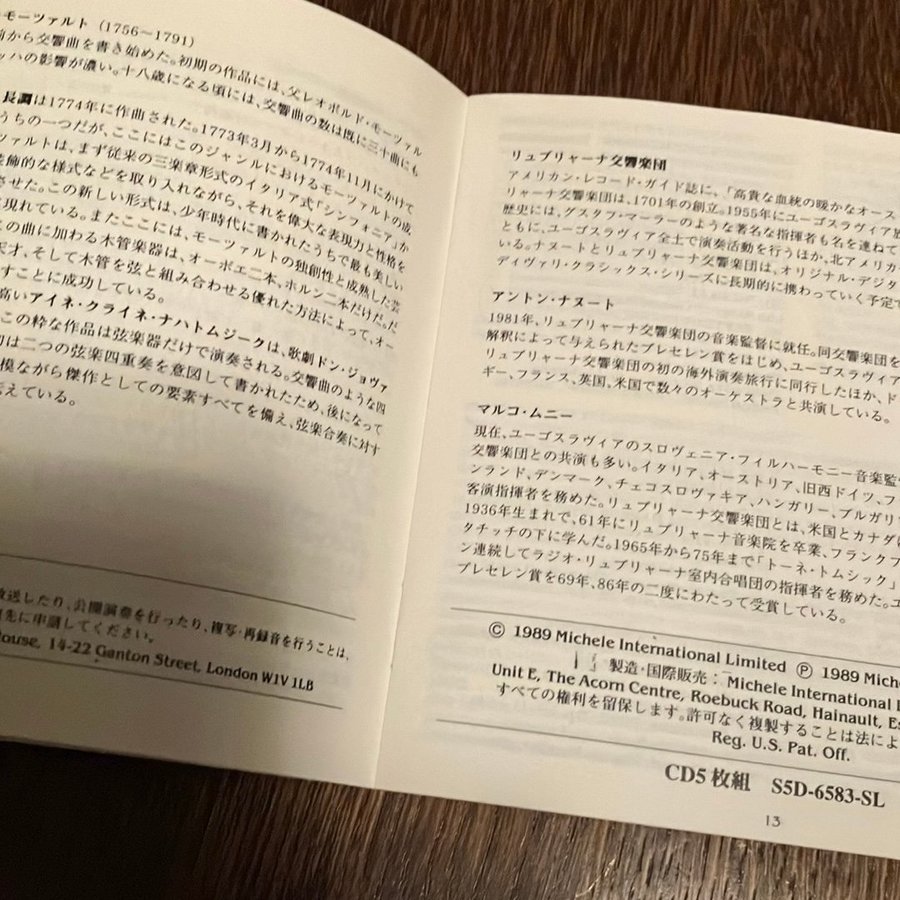 モーツァルト（1756〜1791）
前から交響曲を書き始めた。初期の作品には、父レオポルド・モーツァル
ッハの影響が濃い。十八歳になる頃には、交響曲の数は既に三十曲にも
長調は1774年に作曲された。1773年3月から1774年11月にかけて
うちの一つだが、ここにはこのジャンルにおけるモーツァルトの成
ツァルトは、まず従来の三楽章形式のイタリア式「シンフォニア」か
装飾的な様式などを取り入れながら、それを偉大な表現力と性格を
させた。この新しい形式は、少年時代に書かれたうちで最も美しい
に現れている。またここには、モーツァルトの独創性と成熟した芸
この曲に加わる木管楽器は、オーボエ二本、ホルン二本だけだ。だ
天才、そして木管を弦と組み合わせる優れた方法によって、オー
すことに成功している。
高いアイネ・クライネ・ナハトムジークは、歌劇ドン・ジョヴァ
この粋な作品は弦楽器だけで演奏される。交響曲のような四
初は二つの弦楽四重奏を意図して書かれたため、後になって
模ながら傑作としての要素すべてを備え、弦楽合奏に対す
えている。
放送したり、公開演奏を行ったり、複写・再録音を行うことは、
先に申請してください。
ouse, 14-22 Ganton Street, London W1V 1LB
リュブリャーナ交響楽団
アメリカン・レコード・ガイド誌に、「高貴な血統の暖かなオース
リャーナ交響楽団は、1701年の創立。1955年にユーゴスラヴィア放
歴史には、グスタフ・マーラーのような著名な指揮者も名を連ねて
ともに、ユーゴスラヴィア全土で演奏活動を行うほか、北アメリカ
いる。ナヌートとリュブリャーナ交響楽団は、オリジナル・デジタ
ディヴァリ・クラシックス・シリーズに長期的に携わっていく予定で
アントン・ナヌート
1981年、リュブリャーナ交響楽団の音楽監督に就任。同交響楽団を
解釈によって与えられたプレセレン賞をはじめ、ユーゴスラヴィア
リュブリャーナ交響楽団の初の海外演奏旅行に同行したほか、ド
ギー、フランス、英国、米国で数々のオーケストラと共演している。
マルコ・ムニー
現在、ユーゴスラヴィアのスロヴェニア・フィルハーモニー音楽監
交響楽団との共演も多い。イタリア、オーストリア、旧西ドイツ、フ
ンランド、デンマーク、チェコスロヴァキア、ハンガリー、ブルガリ
客演指揮者を務めた。リュブリャーナ交響楽団とは、米国とカナダ
1936年生まれで、61年にリュブリャーナ音楽院を卒業、フランクフ
タチッチの下に学んだ。1965年から75年まで「トーネ・トムシック」
ン連続してラジオ・リュブリャーナ室内合唱団の指揮者を務めた。ユ
プレセレン賞を69年、86年の二度にわたって受賞している。
© 1989 Michele International Limited ℗ 1989 Miche
製造・国際販売：Michele International L
Unit E, The Acorn Centre, Roebuck Road, Hainault, Es
すべての権利を留保します。許可なく複製することは法によ
Reg. U.S. Pat. Off.
CD5枚組 S5D-6583-SL
13